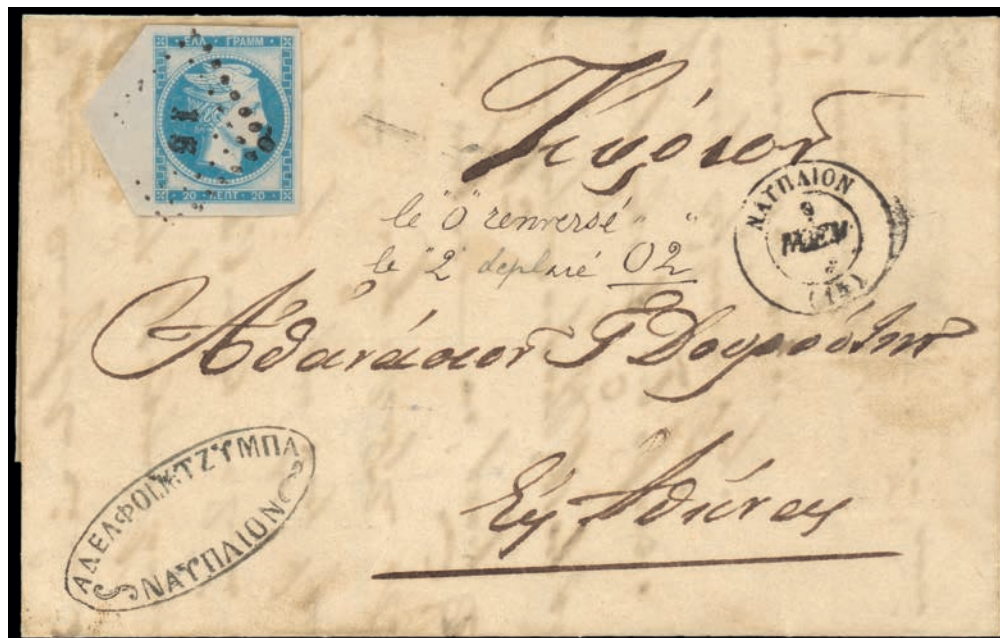 ΕΛΛ · ΓΡΑΜΜ
15
20 ΛΕΠΤ 20
Κύριον
le "0" renversé " "
le "2" deplacé 02
ΝΑΥΠΛΙΟΝ
9
ΝΟΕΜ
(15)
Ἀθανάσιον Γ Δουρούτην
Εἰς Ἀθήνας
ΑΔΕΛΦΟΙ Κ ΤΖΥΜΠΑ
ΝΑΥΠΛΙΟΝ